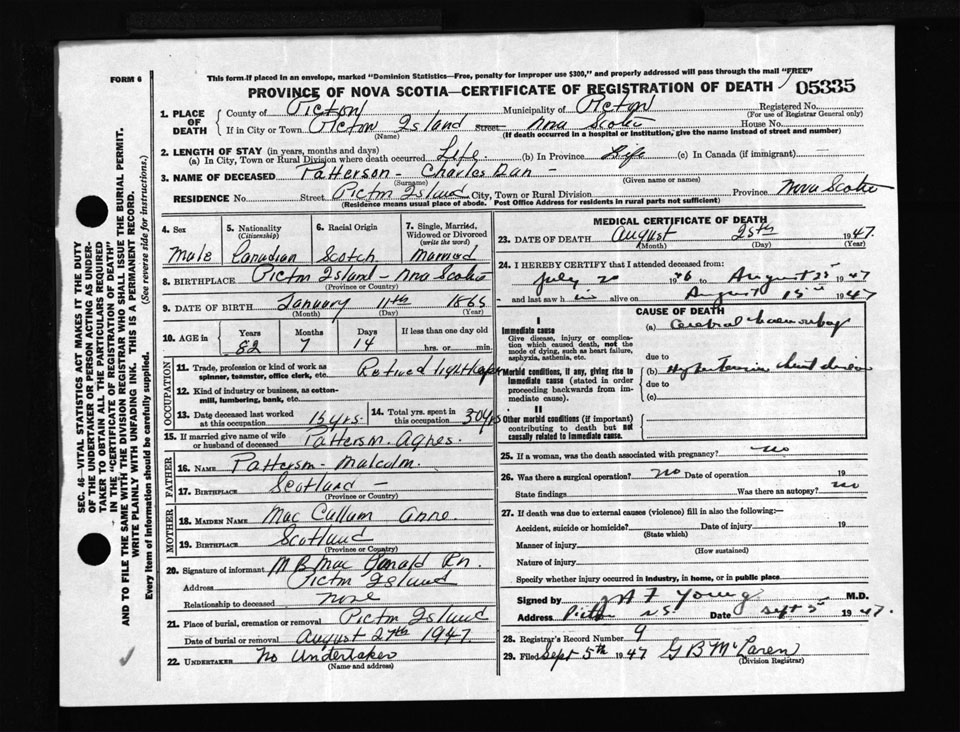 FORM 6
This form if placed in an envelope, marked "Dominion Statistics—Free, penalty for improper use $300," and properly addressed will pass through the mail "FREE"
PROVINCE OF NOVA SCOTIA—CERTIFICATE OF REGISTRATION OF DEATH
05335
1. PLACE OF DEATH
County of Picton Municipality of Picton Registered No.
(For use of Registrar General only)
If in City or Town Picton Island Street Nova Scotia House No.
(Name) (If death occurred in a hospital or institution, give the name instead of street and number)
2. LENGTH OF STAY (in years, months and days)
(a) In City, Town or Rural Division where death occurred Life. (b) In Province Life (c) In Canada (if immigrant) —
3. NAME OF DECEASED Patterson - Charles Dan -
(Surname) (Given name or names)
RESIDENCE No. Street Picton Island City, Town or Rural Division Province Nova Scotia
(Residence means usual place of abode. Post Office Address for residents in rural parts not sufficient)
4. Sex
Male
5. Nationality (Citizenship)
Canadian
6. Racial Origin
Scotch
7. Single, Married, Widowed or Divorced (write the word)
Married
8. BIRTHPLACE Picton Island - Nova Scotia
(Province or Country)
9. DATE OF BIRTH January 11th 1865
(Month) (Day) (Year)
10. AGE in
Years Months Days If less than one day old
82 7 14 hrs. or min.
OCCUPATION
11. Trade, profession or kind of work as spinner, teamster, office clerk, etc. Retired lightkeeper
12. Kind of industry or business, as cotton-mill, lumbering, bank, etc.
13. Date deceased last worked at this occupation 15 yrs.
14. Total yrs. spent in this occupation 30 yrs
15. If married give name of wife or husband of deceased Patterson. Agnes.
FATHER
16. NAME Patterson - Malcolm.
17. BIRTHPLACE Scotland -
(Province or Country)
MOTHER
18. MAIDEN NAME Mac Cullum Anne.
19. BIRTHPLACE Scotland
(Province or Country)
20. Signature of informant M B Mac Donald Rn.
Address Picton Island
Relationship to deceased None
21. Place of burial, cremation or removal Picton Island
Date of burial or removal August 27th 1947.
22. UNDERTAKER No Undertaker
(Name and address)
MEDICAL CERTIFICATE OF DEATH
23. DATE OF DEATH August 25th 1947.
(Month) (Day) (Year)
24. I HEREBY CERTIFY that I attended deceased from:
July 2 1946 to August 25 1947
and last saw him alive on August 15th 1947
CAUSE OF DEATH
I
Immediate cause
Give disease, injury or complication which caused death, not the mode of dying, such as heart failure, asphyxia, asthenia, etc.
(a) Cerebral haemorrhage
due to
Morbid conditions, if any, giving rise to immediate cause (stated in order proceeding backwards from immediate cause).
(b) Hypertensive heart disease
due to
(c)
II
Other morbid conditions (if important) contributing to death but not causally related to immediate cause.
25. If a woman, was the death associated with pregnancy? no
26. Was there a surgical operation? no Date of operation 19
State findings Was there an autopsy? no
27. If death was due to external causes (violence) fill in also the following:—
Accident, suicide or homicide? Date of injury 19
(State which)
Manner of injury
(How sustained)
Nature of injury
Specify whether injury occurred in industry, in home, or in public place
Signed by H F Young M.D.
Address Pictou N.S. Date Sept 5 1947.
28. Registrar's Record Number 9
29. Filed Sept 5th 1947 G B McLaren
(Division Registrar)
SEC. 46—VITAL STATISTICS ACT MAKES IT THE DUTY
OF THE UNDERTAKER OR PERSON ACTING AS UNDER-
TAKER TO OBTAIN ALL THE PARTICULARS REQUIRED
IN THE "CERTIFICATE OF REGISTRATION OF DEATH"
AND TO FILE THE SAME WITH THE DIVISION REGISTRAR WHO SHALL ISSUE THE BURIAL PERMIT.
WRITE PLAINLY WITH UNFADING INK. THIS IS A PERMANENT RECORD.
Every item of information should be carefully supplied. (See reverse side for instructions.)